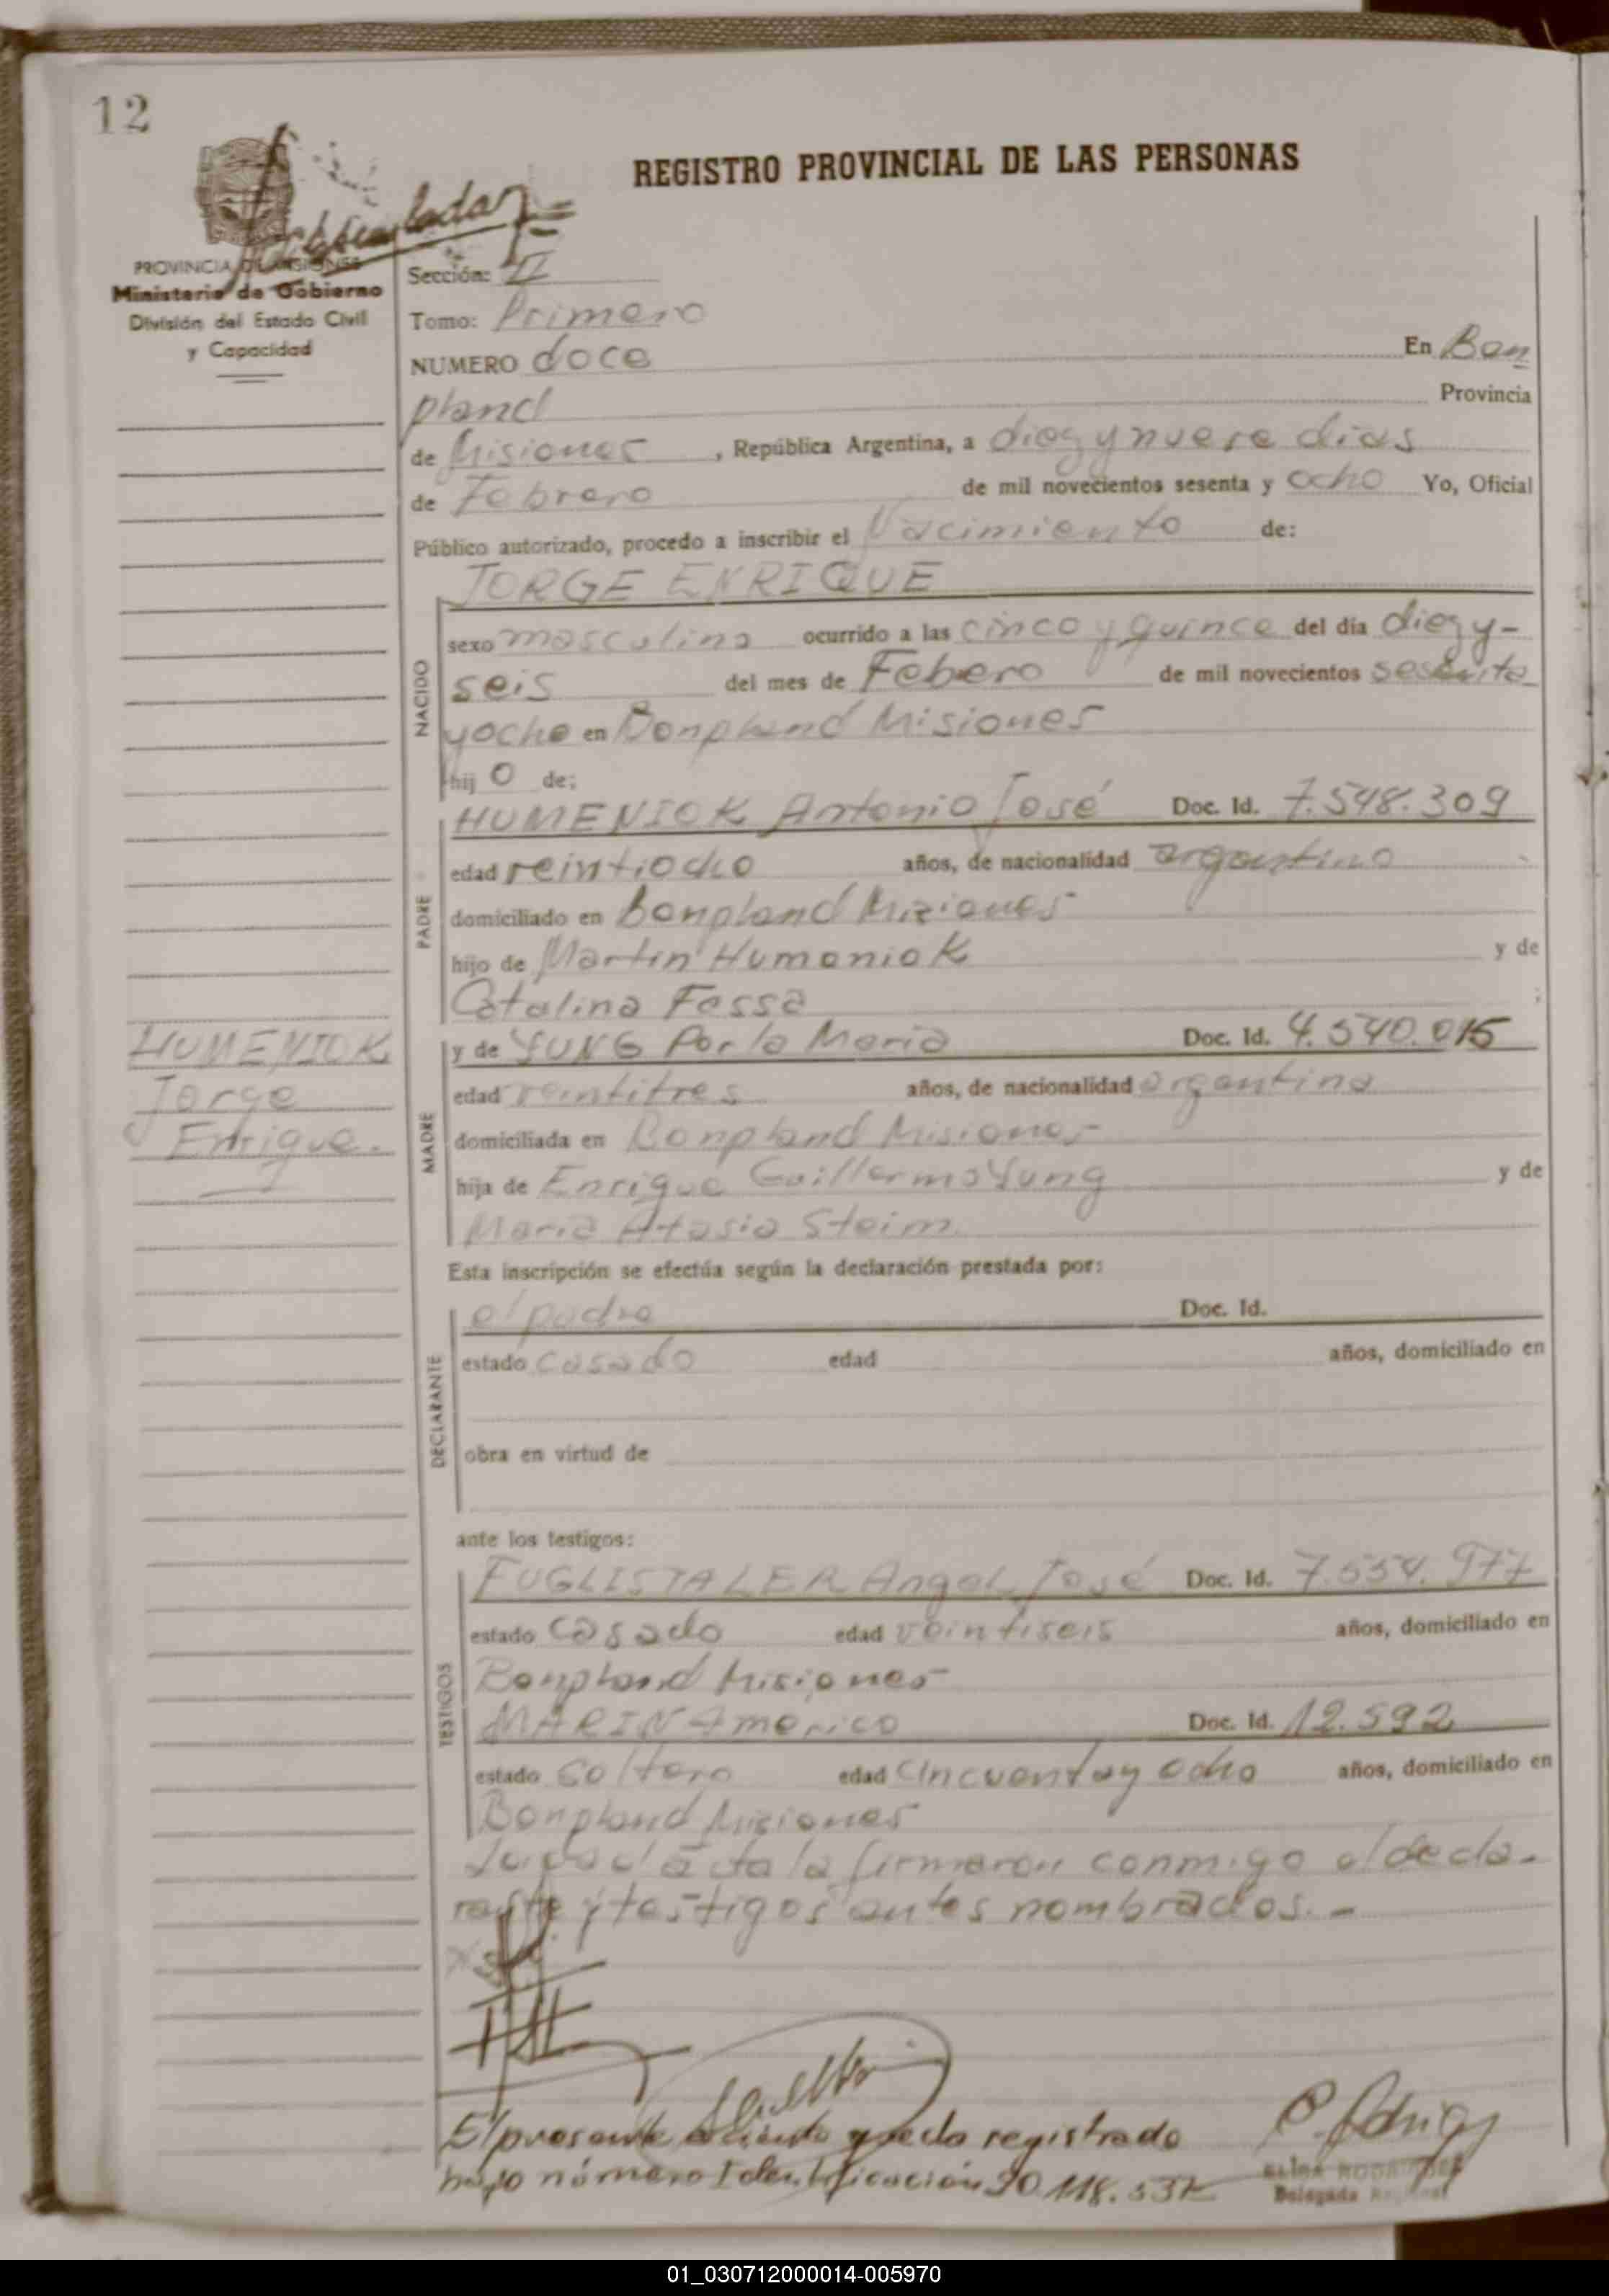 12
REGISTRO PROVINCIAL DE LAS PERSONAS
PROVINCIA DE MISIONES
Ministerio de Gobierno
División del Estado Civil
y Capacidad
Sección: II
Tomo: Primero
NUMERO doce En Bon
pland Provincia
de Misiones , República Argentina, a diez y nueve dias
de Febrero de mil novecientos sesenta y ocho Yo, Oficial
Público autorizado, procedo a inscribir el Nacimiento de:
JORGE ENRIQUE
NACIDO
sexo masculino ocurrido a las cinco y quince del día diez y-
seis del mes de Febero de mil novecientos sesenta
y ocho en Bonpland Misiones
hij o de:
PADRE
HUMENIOK Antonio José Doc. Id. 7.548.309
edad veintiocho años, de nacionalidad argentino
domiciliado en Bonpland Misiones
hijo de Martin Humeniok y de
Catalina Fessa
HUMENIOK
Jorge
Enrique.
MADRE
y de YUNG Perla Maria Doc. Id. 4.540.015
edad veintitres años, de nacionalidad argentina
domiciliada en Bonpland Misiones
hija de Enrique Guillermo Yung y de
Maria Atasia Steim
Esta inscripción se efectúa según la declaración prestada por:
DECLARANTE
el padre Doc. Id.
estado casado edad años, domiciliado en
obra en virtud de
ante los testigos:
TESTIGOS
FUGLISTALER Angel José Doc. Id. 7.554.977
estado casado edad veintiseis años, domiciliado en
Bonpland Misiones
MARIN Americo Doc. Id. 12.592
estado soltero edad cincuenta y ocho años, domiciliado en
Bonpland Misiones
acta la firmaron conmigo el decla-
rante y testigos antes nombrados.-
El presente asiento queda registrado
bajo número Identificación 20.118.537
ELINA RODRIGUEZ
Delegada Regional
01_030712000014-005970